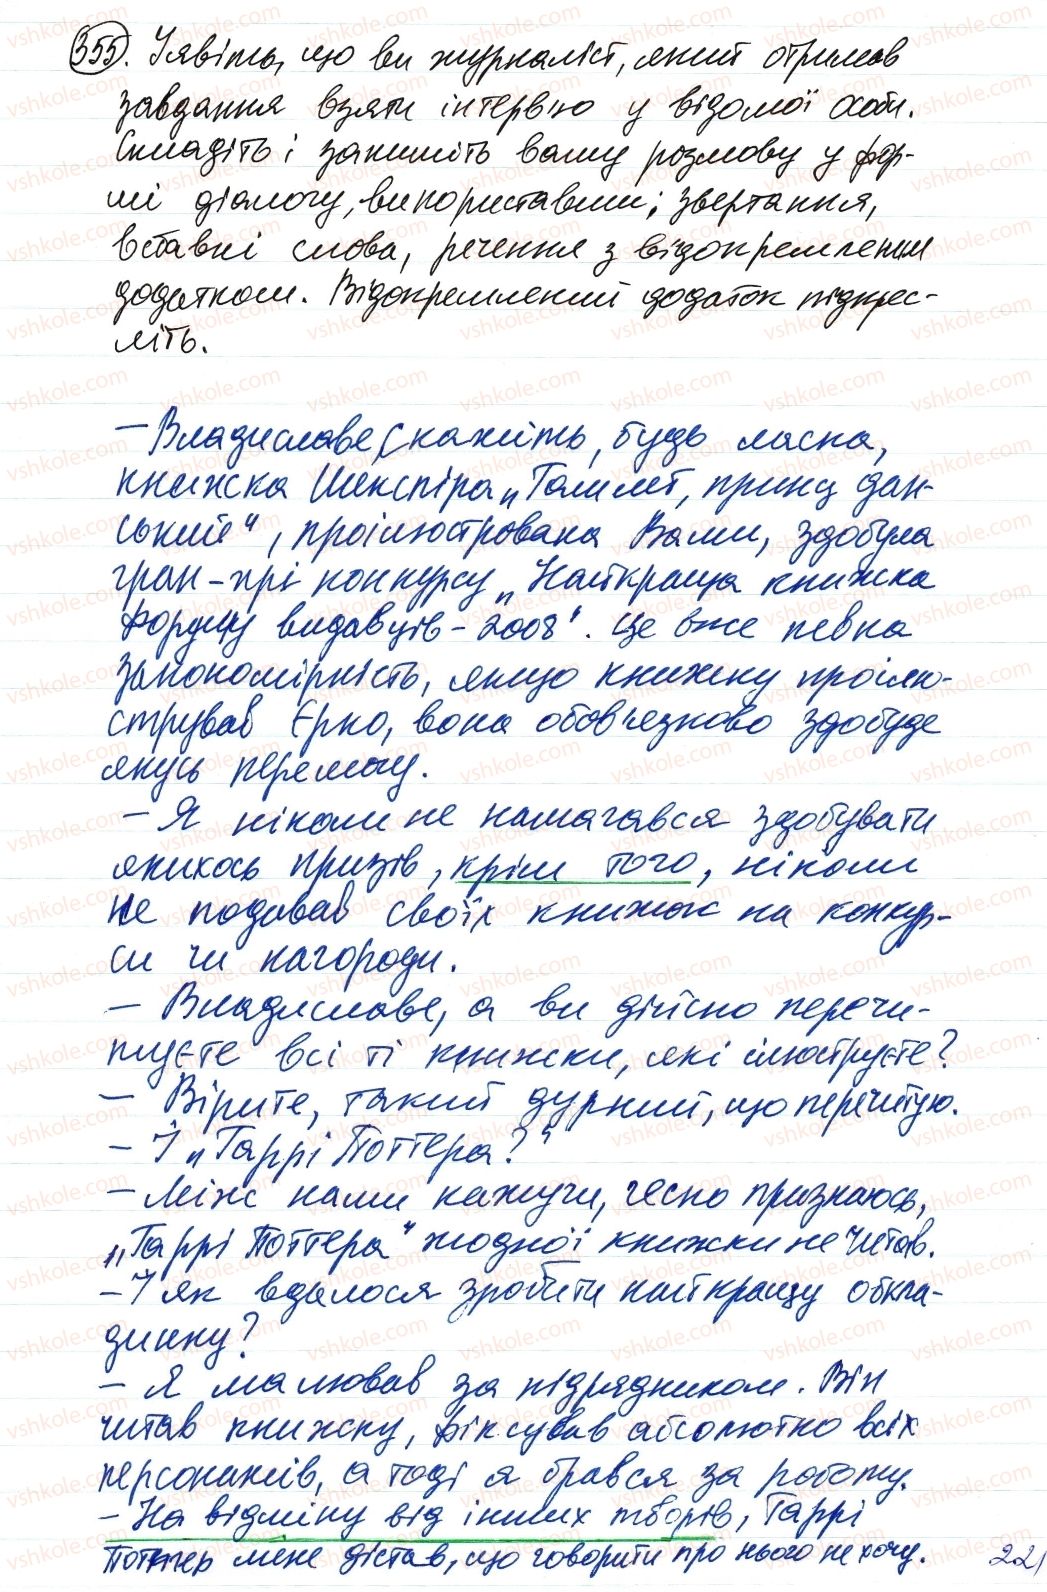 355. Уявіть, що ви журналіст, який отримав
завдання взяти інтерв'ю у відомої особи.
Складіть і запишіть вашу розмову у фор-
мі діалогу, використавши; звертання,
вставні слова, речення з відокремленим
додатком. Відокремлений додаток підкрес-
літь.
– Владиславе, скажіть, будь ласка,
книжка Шекспіра „Гамлет, принц дан-
ський", проілюстрована Вами, здобула
гран-прі конкурсу „Найкраща книжка
Форуму видавців – 2008". Це вже певна
закономірність, якщо книжку проілю-
стрував Єрко, вона обов'язково здобуде
якусь перемогу.
– Я ніколи не намагався здобувати
якихось призів, крім того, ніколи
не подавав своїх книжок на конкур-
си чи нагороди.
– Владиславе, а ви дійсно перечи-
туєте всі ті книжки, які ілюструєте?
– Вірите, такий дурний, що перечитую.
– І „Гаррі Поттера?"
– Між нами кажучи, чесно признаюсь,
„Гаррі Поттера" жодної книжки не читав.
– І як вдалося зробити найкращу обкла-
динку?
– Я малював за підрядником. Він
читав книжку, фіксував абсолютно всіх
персонажів, а тоді я брався за роботу.
– На відміну від інших творів, Гаррі
Поттер мене дістав, що говорити про нього не хочу.
221
vshkole.com